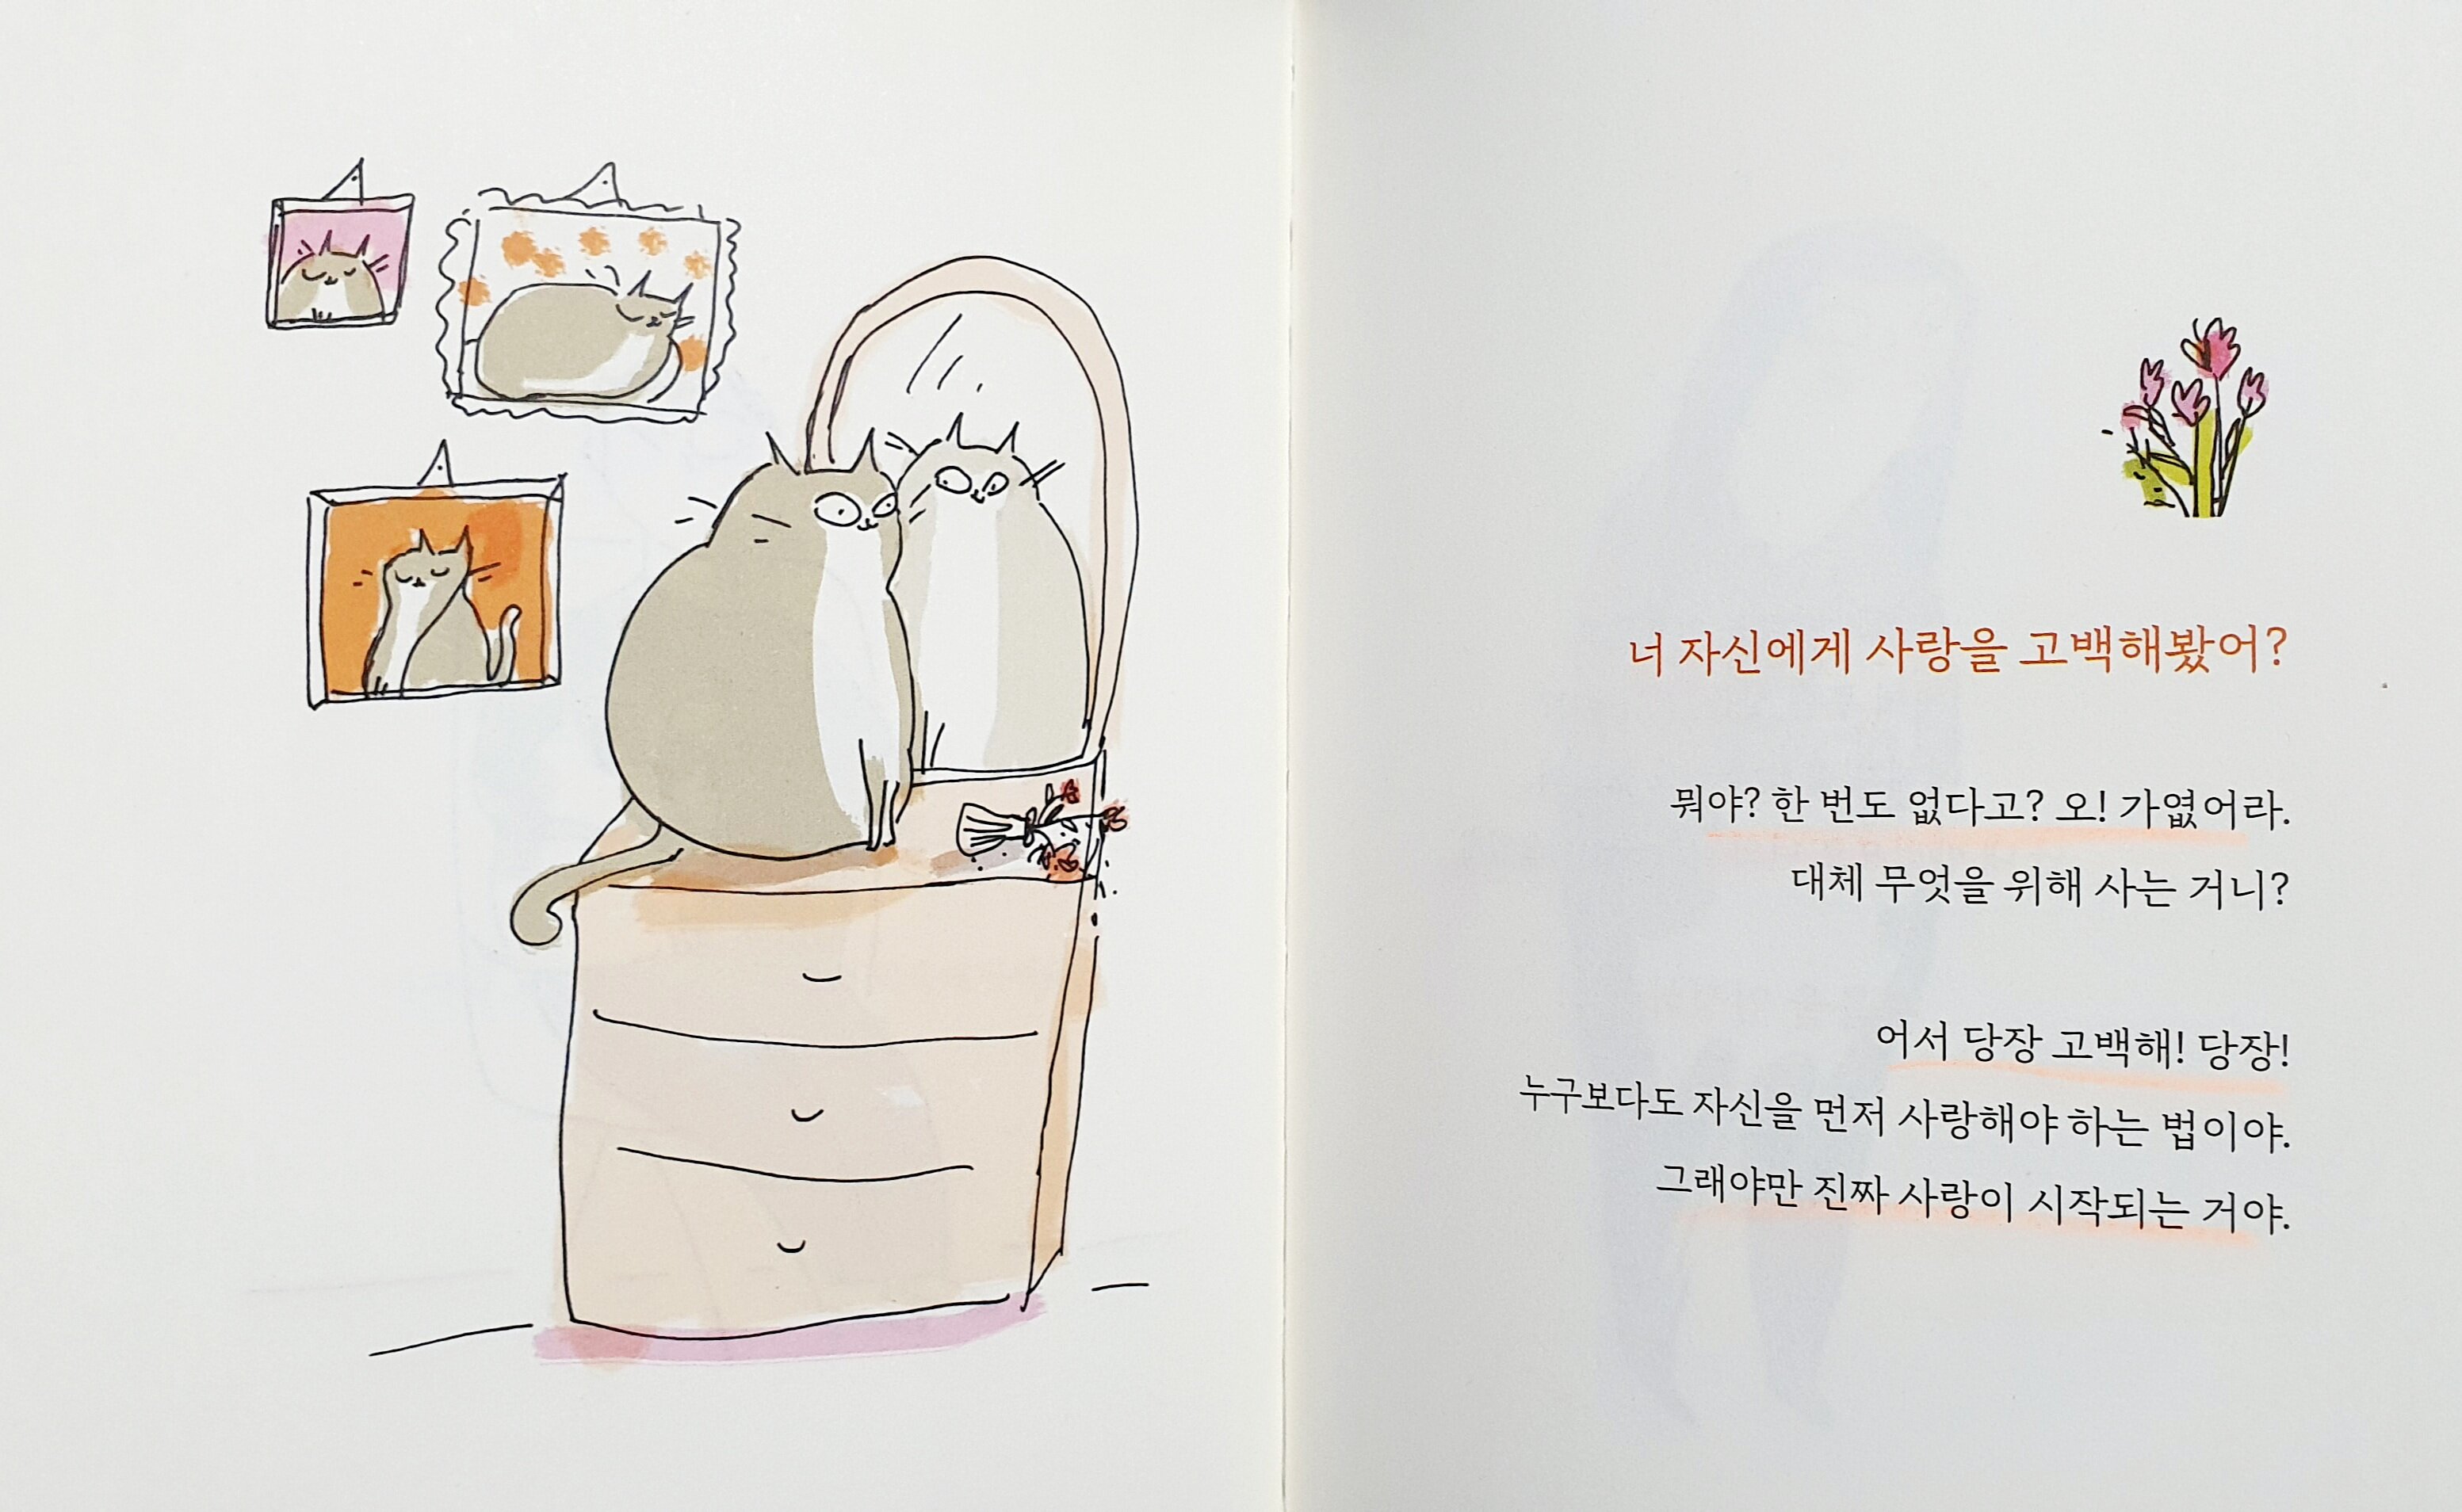 너 자신에게 사랑을 고백해봤어?
뭐야? 한 번도 없다고? 오! 가엾어라.
대체 무엇을 위해 사는 거니?
어서 당장 고백해! 당장!
누구보다도 자신을 먼저 사랑해야 하는 법이야.
그래야만 진짜 사랑이 시작되는 거야.